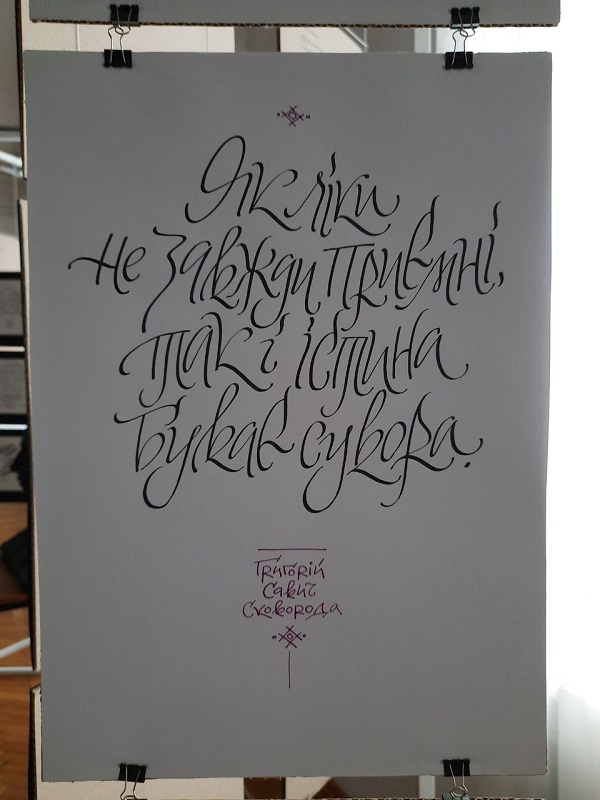 Як ліки
не завжди приємні,
так і істина
буває сувора.
Григорій
Савич
Сковорода